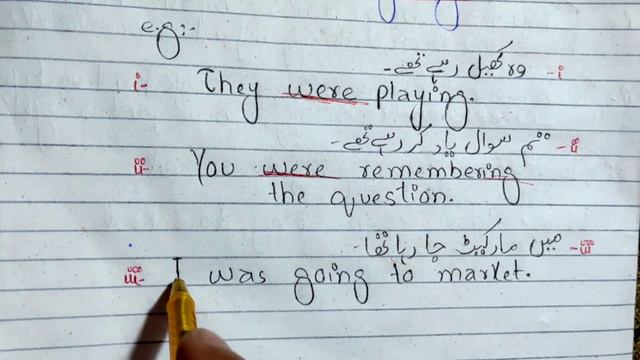 e.g:-
وہ کھیل رہے تھے۔ -i
i- They were playing.
تم سوال یاد کر رہے تھے۔ -ii
ii- You were remembering
the question.
میں مارکیٹ جا رہا تھا۔ -iii
iii- I was going to market.